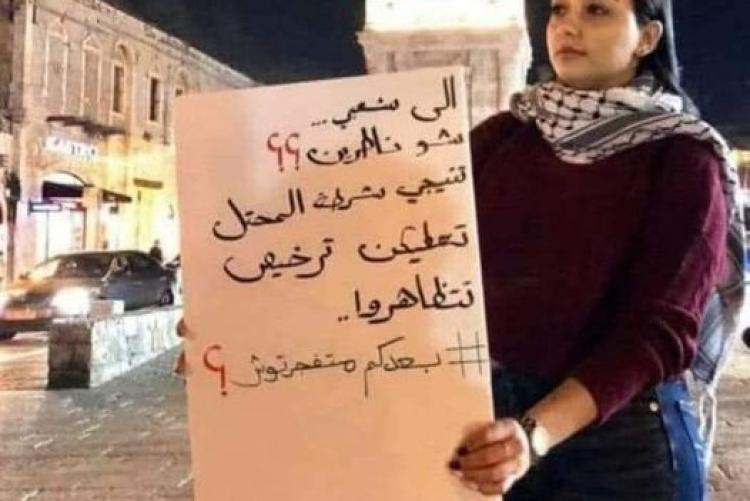 الى شعبي...
شو ناطرين؟؟
تتيجي شرطة المحتل
تعطيكن ترخيص
تتظاهروا..
#بعدكم متفجرتوش؟